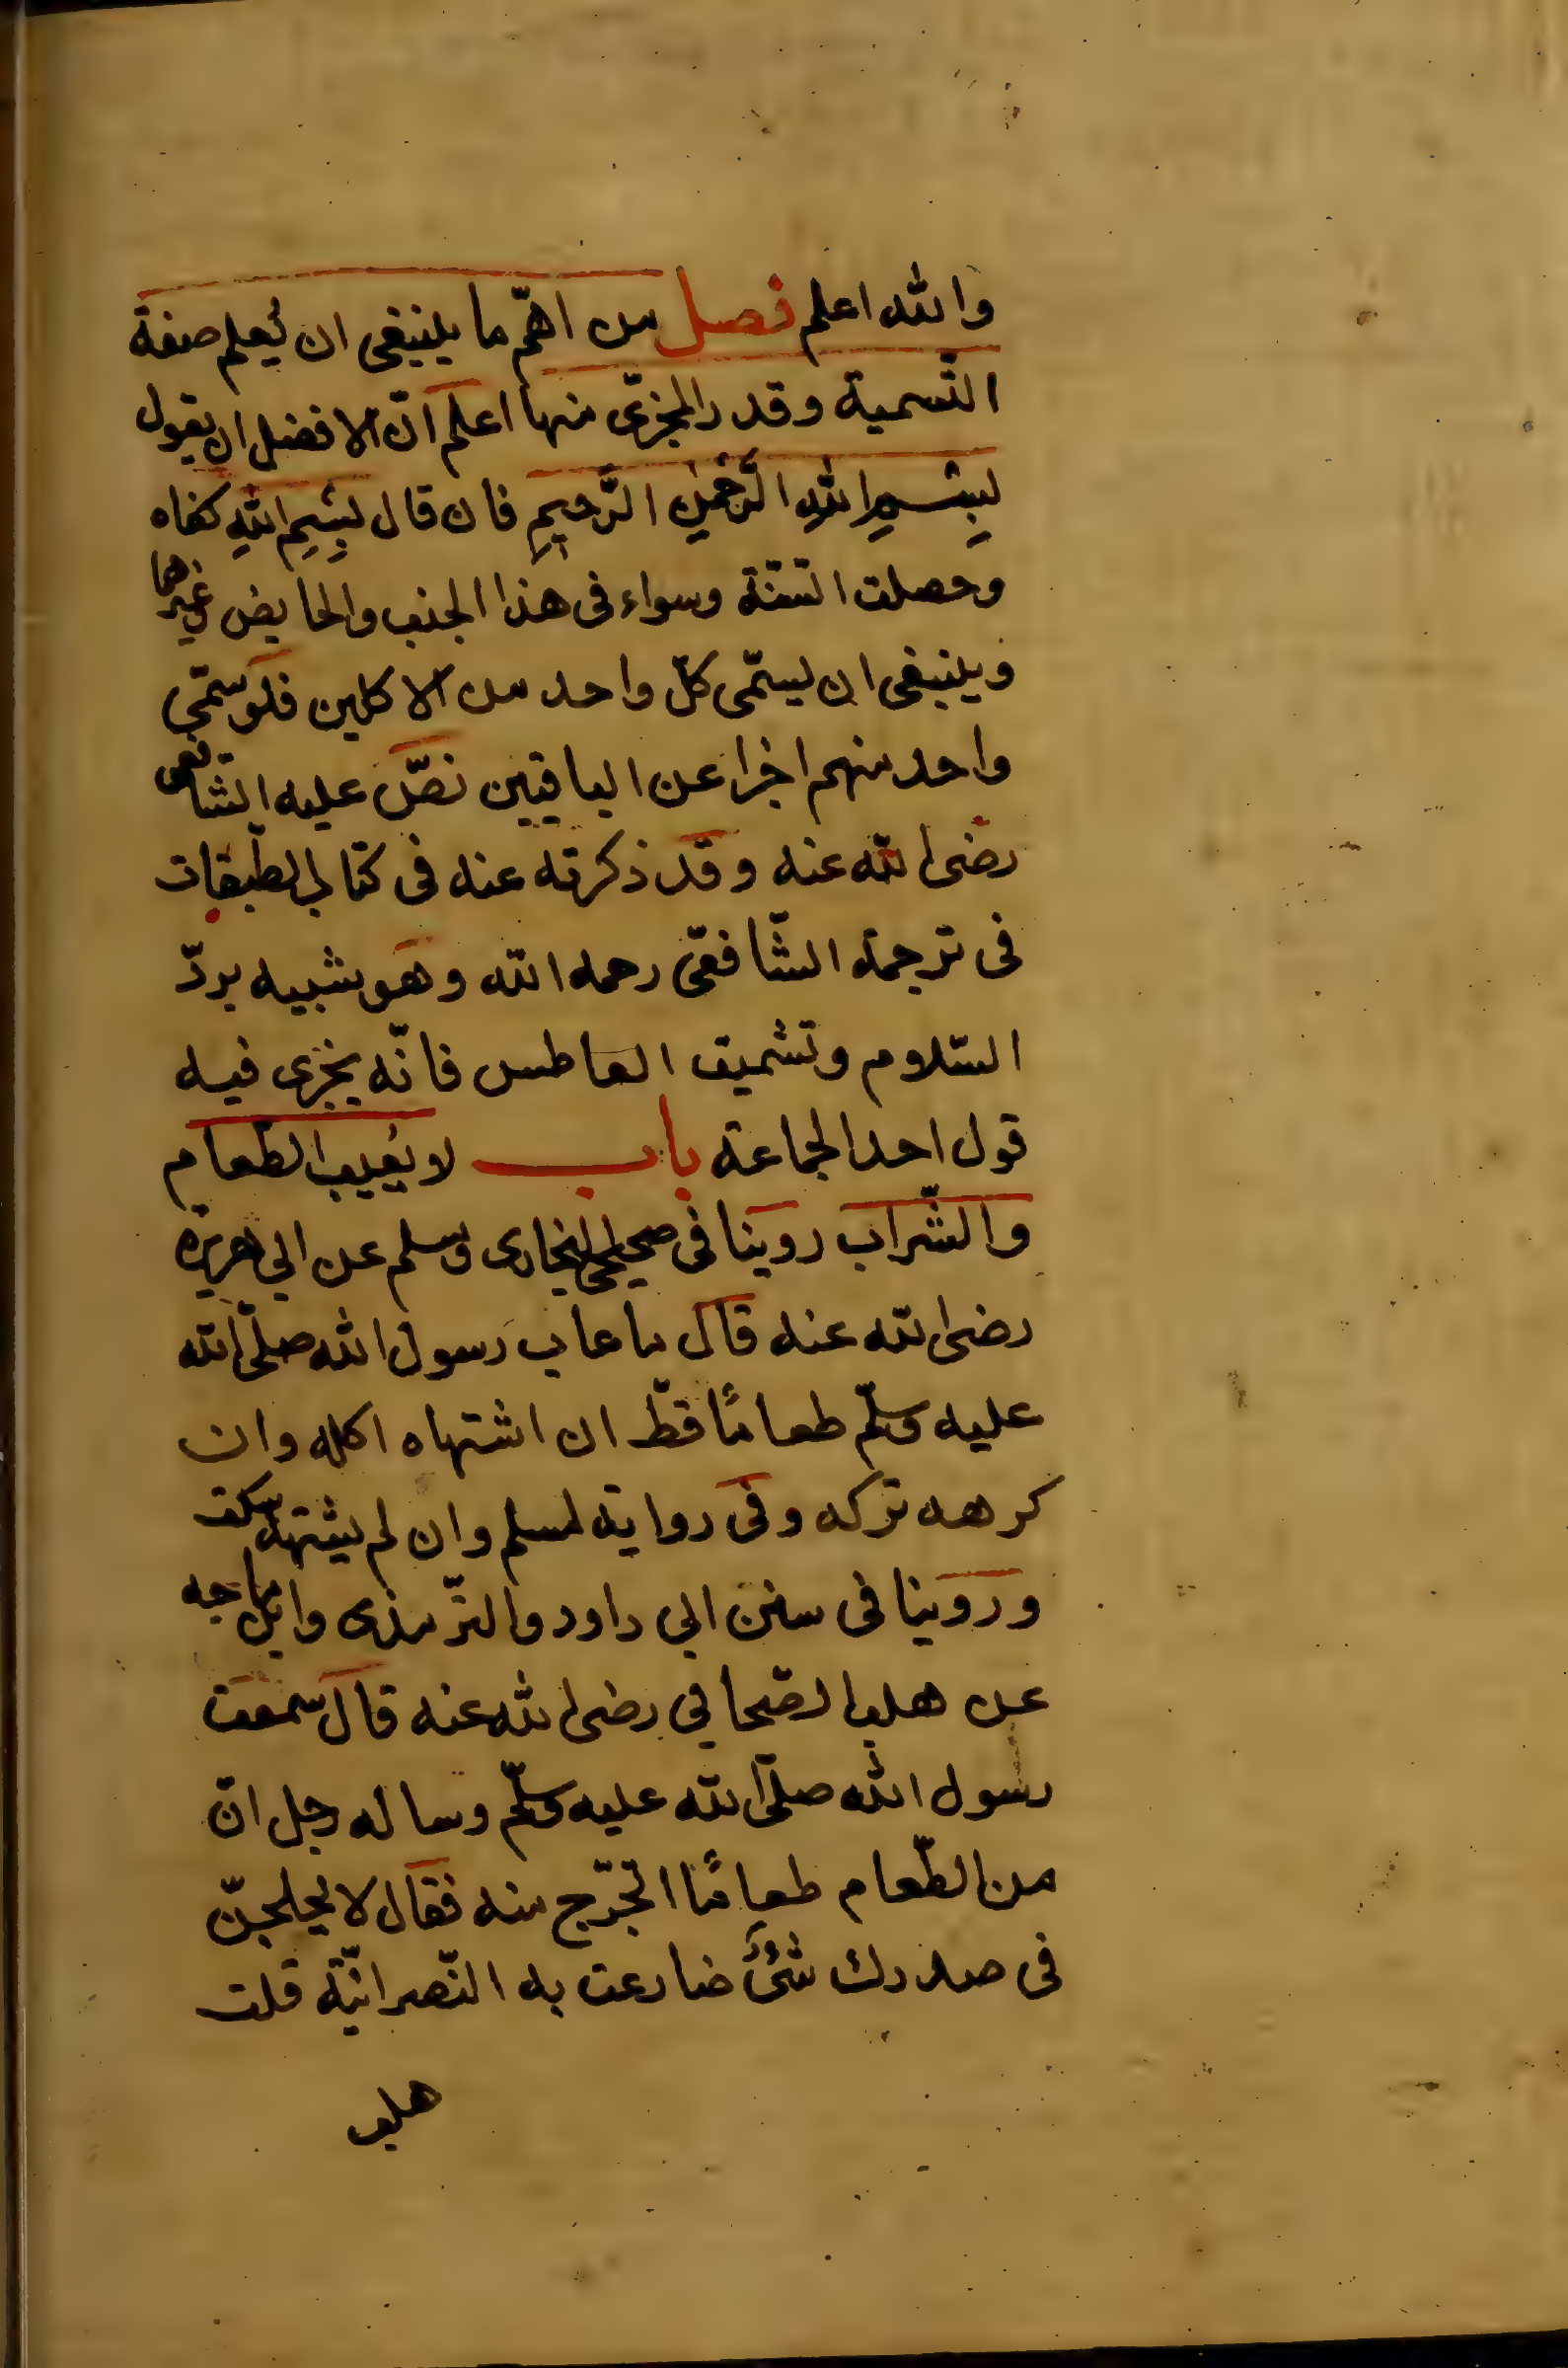 والله اعلم فصل من اهمّ ما ينبغى ان يُعلم صفة
التّسمية وقدر المجزئ منها اعلم انّ الافضل ان يقول
بِسْمِ اللهِ الرَّحْمٰنِ الرَّحِيمِ فان قال بِسْمِ اللهِ كفاه
وحصلت السّنّة وسواء فى هذا الجنب والحايض وغيرهما
وينبغى ان يسمّى كلّ واحد من الاكلين فلو سمّى
واحد منهم اجزا عن الباقين نصّ عليه الشّافعى
رضى الله عنه وقد ذكرته عنه فى كتاب الطّبقات
فى ترجمة الشّافعّى رحمه الله وهو شبيه بردّ
السّلام وتشميت العاطس فانّه يجزى فيه
قول احد الجماعة باب لا يَعيب الطّعام
والشّراب روينا فى صحيحى البخارى ومسلم عن ابي هريرة
رضى الله عنه قال ما عاب رسول الله صلّى الله
عليه وسلّم طعامًا قطّ ان اشتهاه اكله وان
كرهه تركه وفى رواية لمسلم وان لم يشتهه سكت
وروينا فى سنن ابي داود والتّرمذى وابن ماجه
عن هلب الصّحابي رضى الله عنه قال سمعت
رسول الله صلّى الله عليه وسلّم وساله رجل انّ
من الطّعام طعامًا اتحّرج منه فقال لا يحلجنّ
فى صدرك شئٌ ضارعت به النّصرانيّة قلت
هلب